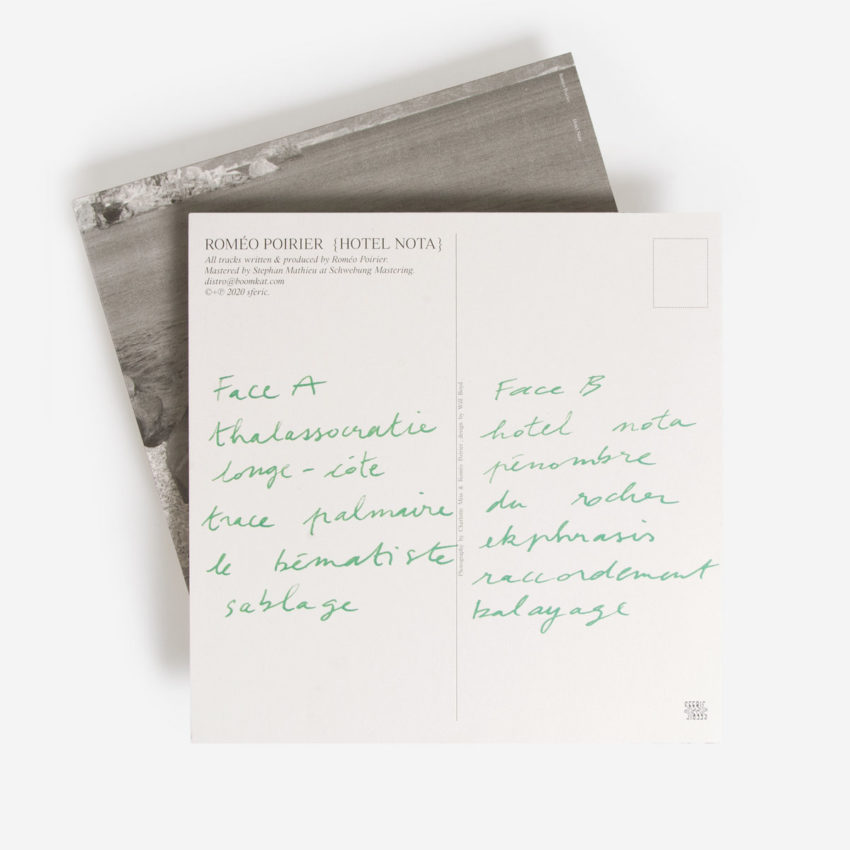 ROMÉO POIRIER {HOTEL NOTA}
All tracks written & produced by Roméo Poirier.
Mastered by Stephan Mathieu at Schwebung Mastering.
distro@boomkat.com
©+℗ 2020 sferic.
Face A
thalassocratie
longe-côte
trace palmaire
le bématiste
sablage
Photographs by Charlotte & Roméo Poirier design by Will Boyd
Face B
hotel nota
pénombre
du rocher
ekphrasis
raccordement
balayage
SFERIC
Roméo Poirier
Hotel Nota